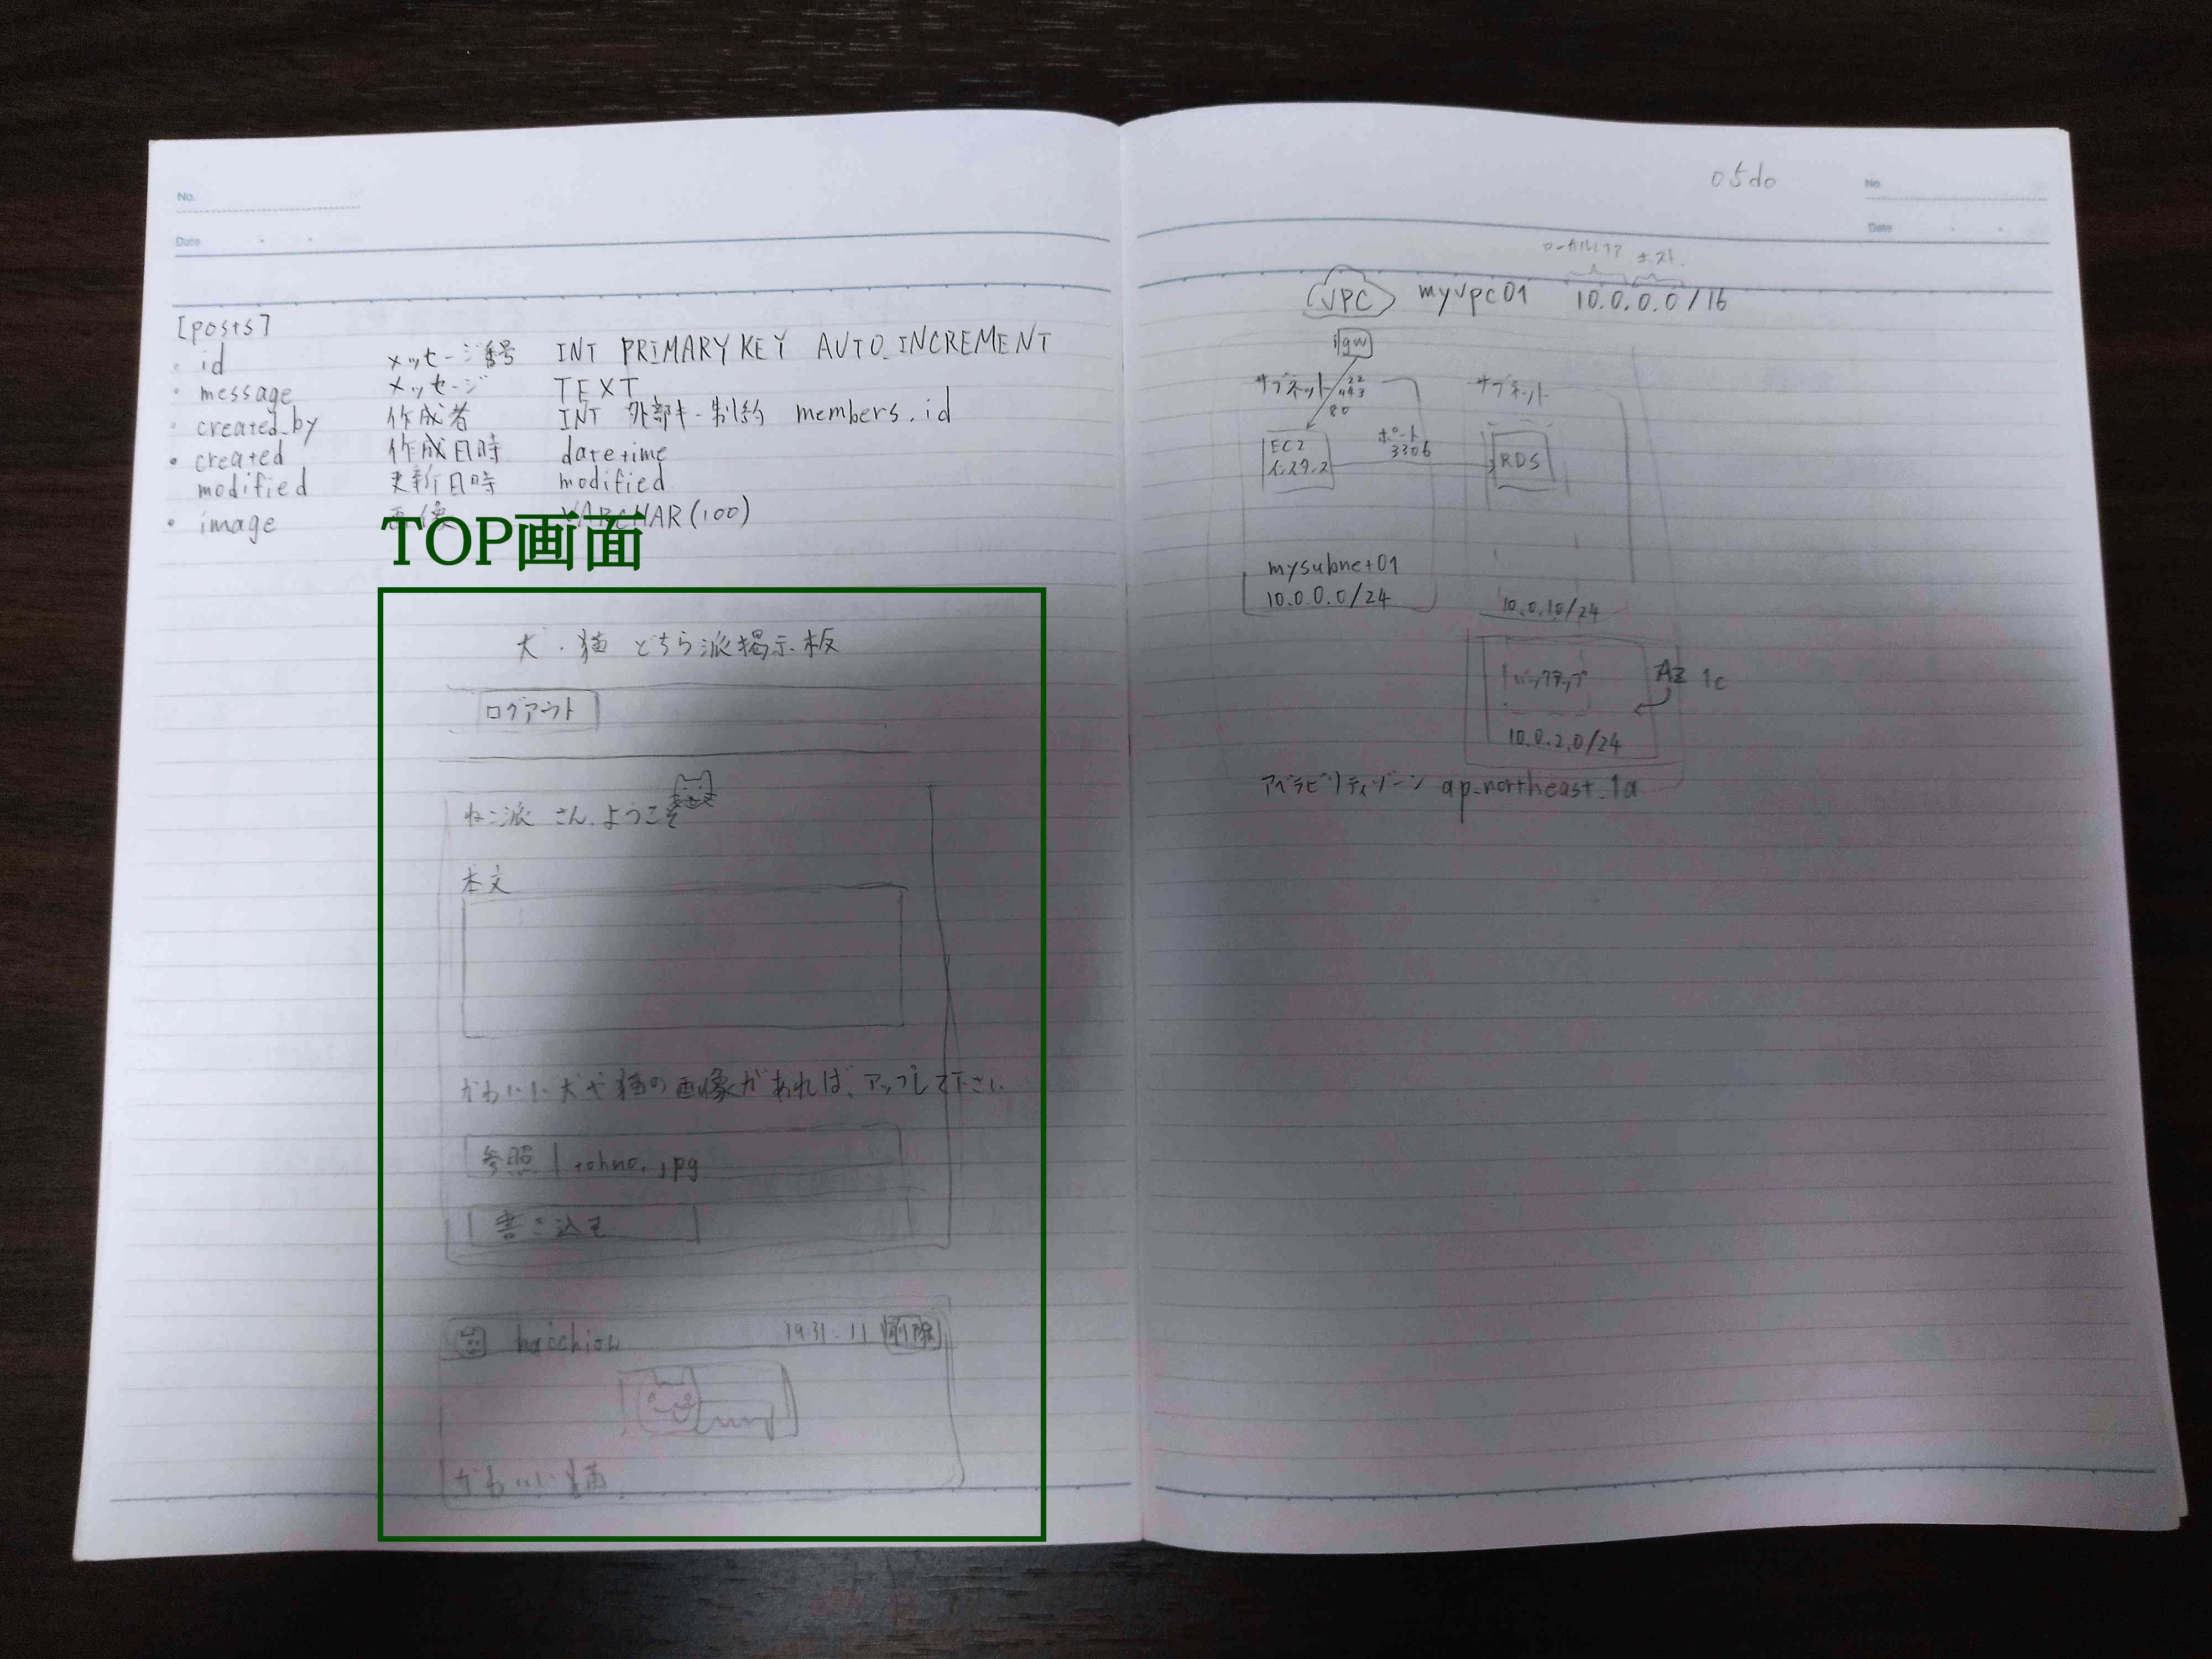 No.
Date
[posts]
・ id メッセージ番号 INT PRIMARY KEY AUTO_INCREMENT
・ message メッセージ TEXT
・ created_by 作成者 INT 外部キー制約 members.id
・ created 作成日時 datetime
modified 更新日時 modified
・ image 画像 VARCHAR(100)
TOP画面
犬・猫 どちら派掲示板
ログアウト
ねこ派 さん、ようこそ
本文
かわいい犬や猫の画像があれば、アップして下さい
参照 .jpg
書き込む
19:31 11 削除
かわいい猫
No.
Date
VPC myvpc01 10.0.0.0/16
ホスト
igw
サブネット 22
443
80
サブネット
EC2
インスタンス
ポート
3306
RDS
mysubnet01
10.0.0.0/24
10.0.10/24
バックアップ
AZ 1c
10.0.2.0/24
アベラビリティゾーン ap_northeast_1a